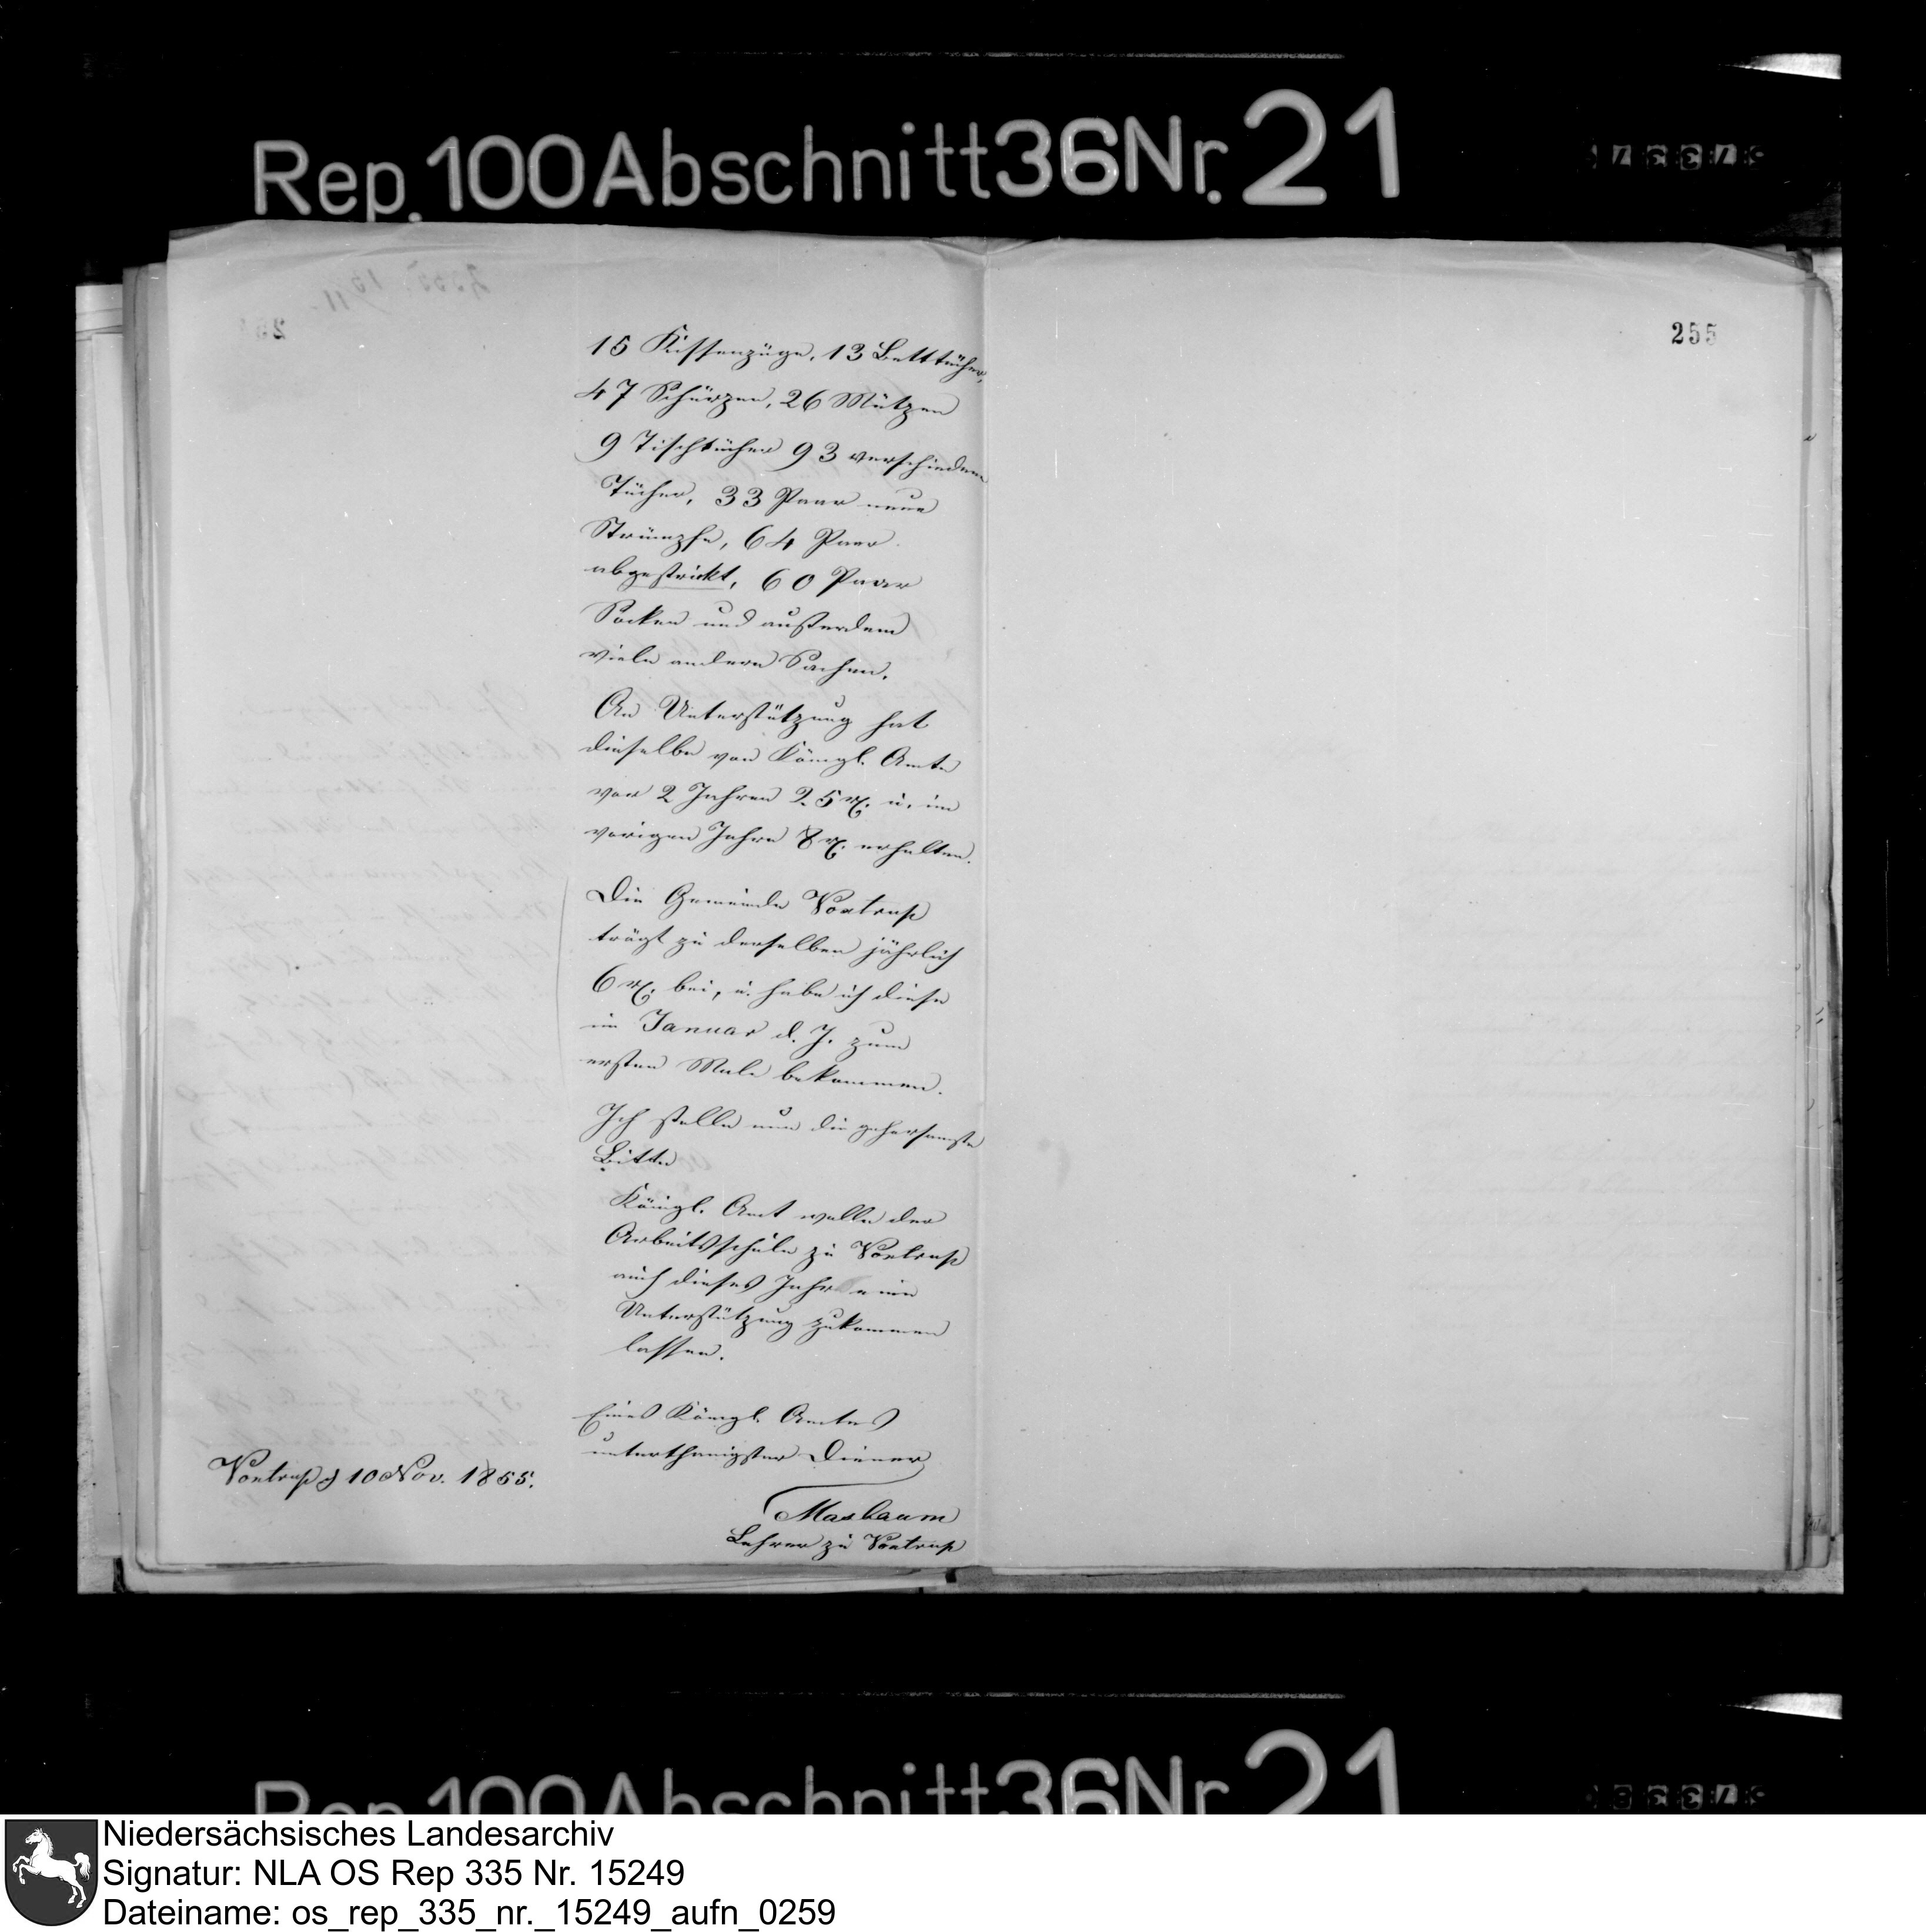 Rep. 100 Abschnitt 36 Nr. 21
255
15 Kissenzüge, 13 Betttücher,
47 Schürzen, 26 Mützen
9 Tischtücher 93 verschiedene
Tücher, 33 Paar neue
Strümpfe, 64 Paar
abgestrickt, 60 Paar
Socken und außerdem
viele andere Sachen.
An Unterstützung hat
dieselbe von Königl. Amte
vor 2 Jahren 25 rℓ. u. im
vorigen Jahre 8 rℓ. erhalten.
Die Gemeinde Voxtrup
trägt zu derselben jährlich
6 rℓ. bei, u. habe ich diese
im Januar d. J. zum
ersten Male bekommen.
Ich stelle nun die gehorsamste
Bitte
Königl. Amt wolle der
Arbeitsschule zu Voxtrup
auch dieses Jahr eine
Unterstützung zukommen
lassen.
Eines Königl. Amtes
unterthänigster Diener
Voxtrup d 10 Nov. 1855.
Masbaum
Lehrer zu Voxtrup
Rep. 100 Abschnitt 36 Nr. 21
Niedersächsisches Landesarchiv
Signatur: NLA OS Rep 335 Nr. 15249
Dateiname: os_rep_335_nr._15249_aufn_0259